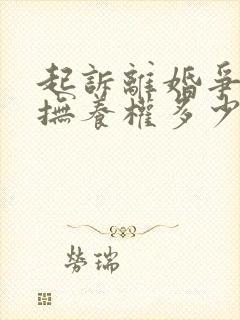 起訴離婚爭
撫養權多少
勞瑞